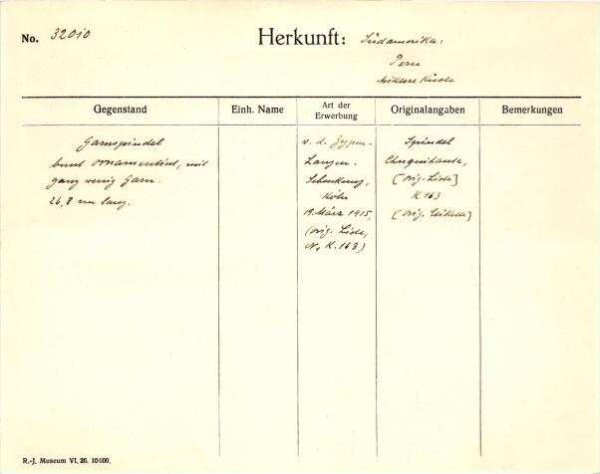 No. 32010
Herkunft: Südamerika:
Peru
mittlere Küste
Gegenstand
Einh. Name
Art der
Erwerbung
Originalangaben
Bemerkungen
Garnspindel
bunt ornamentiert, mit
ganz wenig Garn.
26,8 cm lang.
v. d. Zypen-
Langen.
Schenkung,
Köln
19. März 1915,
(orig. Liste,
No K. 163)
Spindel
Chuquitanta,
[orig. Liste]
K 163
(orig. Etikett)
R.-J. Museum VI. 26. 10000.